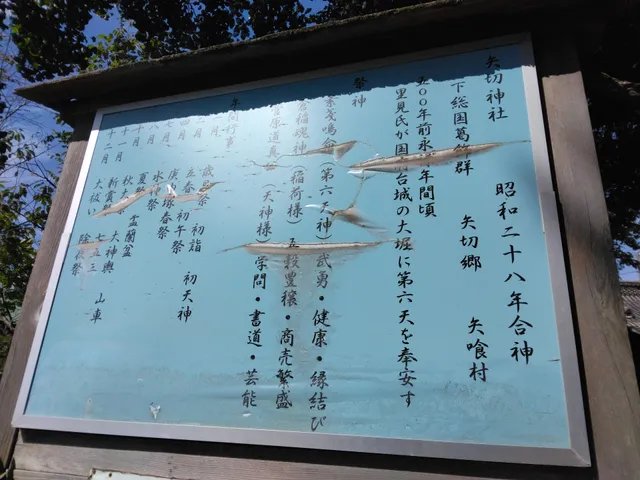 矢切神社
昭和二十八年合神
下総国葛飾群 矢切郷 矢喰村
五〇〇年前永 年間頃
里見氏が国府台城の大堀に第六天を奉安す
祭神
素戔鳴命(第六天神)武勇・健康・縁結び
倉稲魂神(稲荷様)五穀豊穣・商売繁盛
菅原道真(天神様)学問・書道・芸能
年間行事
歳 祭 初詣 初天神
立春祭 初午祭
庚 春祭
八月 水 祭
九月 夏 祭 霊蘭盆
十月 秋 祭 大神輿 山車
十一月 新嘗祭 七五三
十二月 大祓 除夜祭